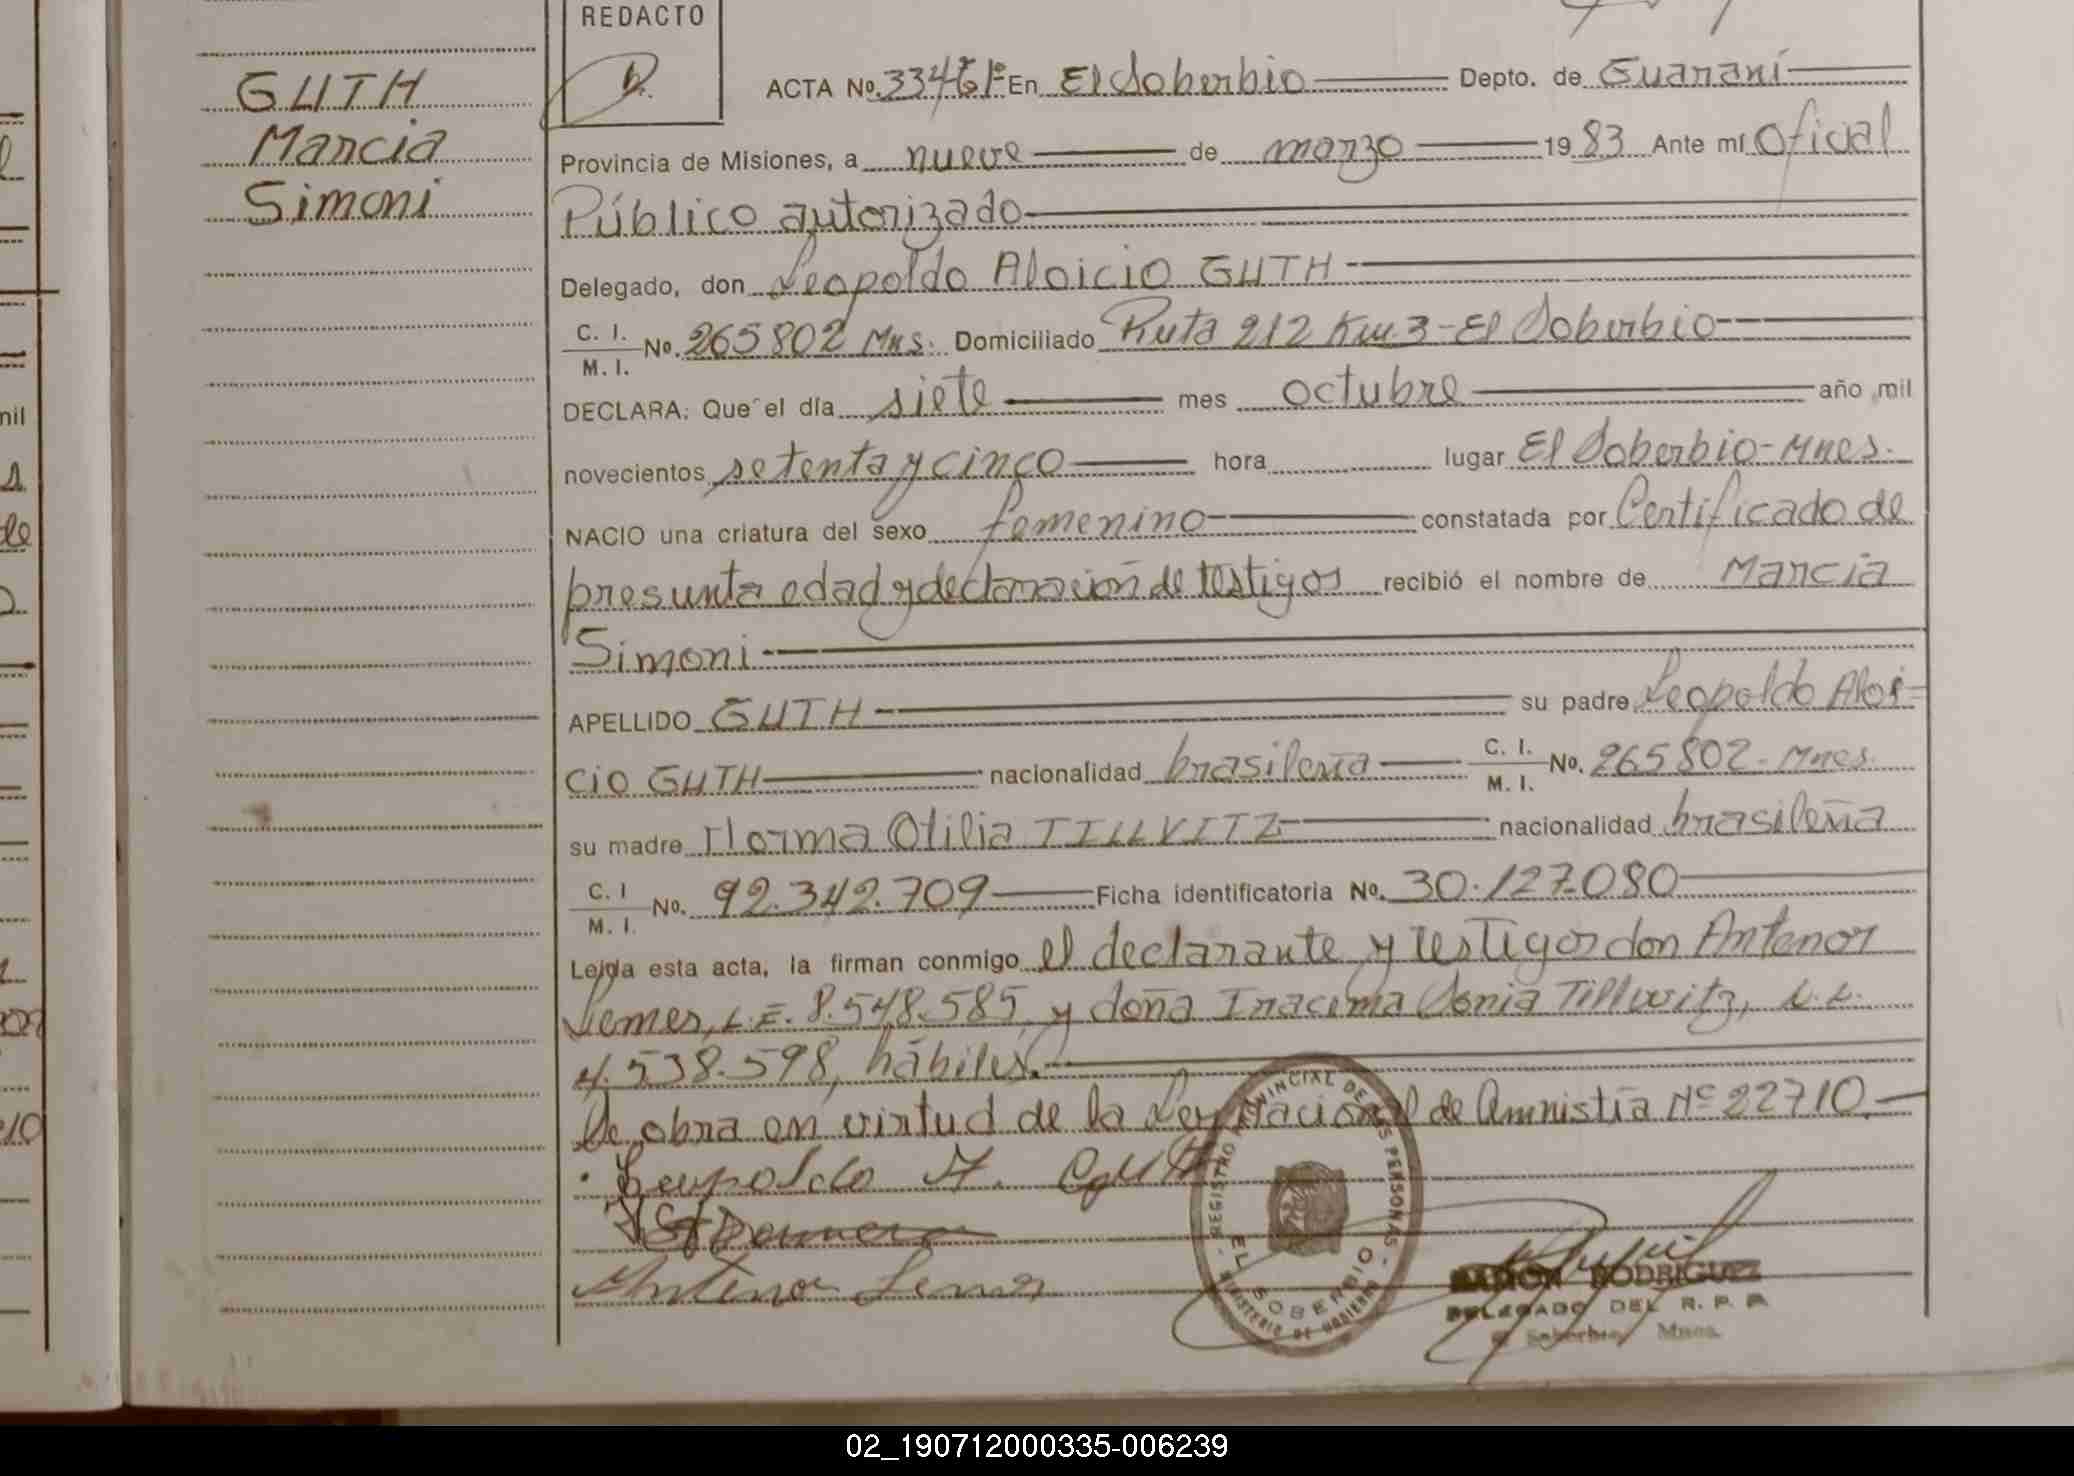 REDACTO
GUTH
Marcia
Simoni
ACTA No. En El Soberbio Depto. de Guaraní
Provincia de Misiones, a nueve de marzo 1983 Ante mí Oficial
Público autorizado
Delegado, don Leopoldo Aloicio GUTH
C. I.
M. I. No. 265802 Mns. Domiciliado Ruta 212 Km. 3-El Soberbio
DECLARA: Que el día siete mes octubre año mil
novecientos setenta y cinco hora lugar El Soberbio-Mnes.
NACIO una criatura del sexo femenino constatada por Certificado de
presunta edad y declaración de testigos recibió el nombre de Marcia
Simoni
APELLIDO GUTH su padre Leopoldo Aloi-
cio GUTH nacionalidad brasileña C. I.
M. I. No. 265802-Mnes.
su madre Norma Otilia TILLVITZ nacionalidad brasileña
C. I
M. I. No. 92.342.709 Ficha identificatoria No. 30.127.080
Leida esta acta, la firman conmigo el declarante y testigos don Antenor
Lemes, L.E. 8.548.585 y doña Iracema Sonia Tillwitz, L.C.
4.538.598, hábiles.
Se obra en virtud de la Ley Nacional de Amnistía Nº 22710.
Leopoldo A. Guth
Antenor Lemes
REGISTRO PROVINCIAL DE LAS PERSONAS
EL SOBERBIO
MINISTERIO DE GOBIERNO
RAMON RODRIGUEZ
DELEGADO DEL R. P. P.
El Soberbio Mnes.
nil
s
de
02_190712000335-006239